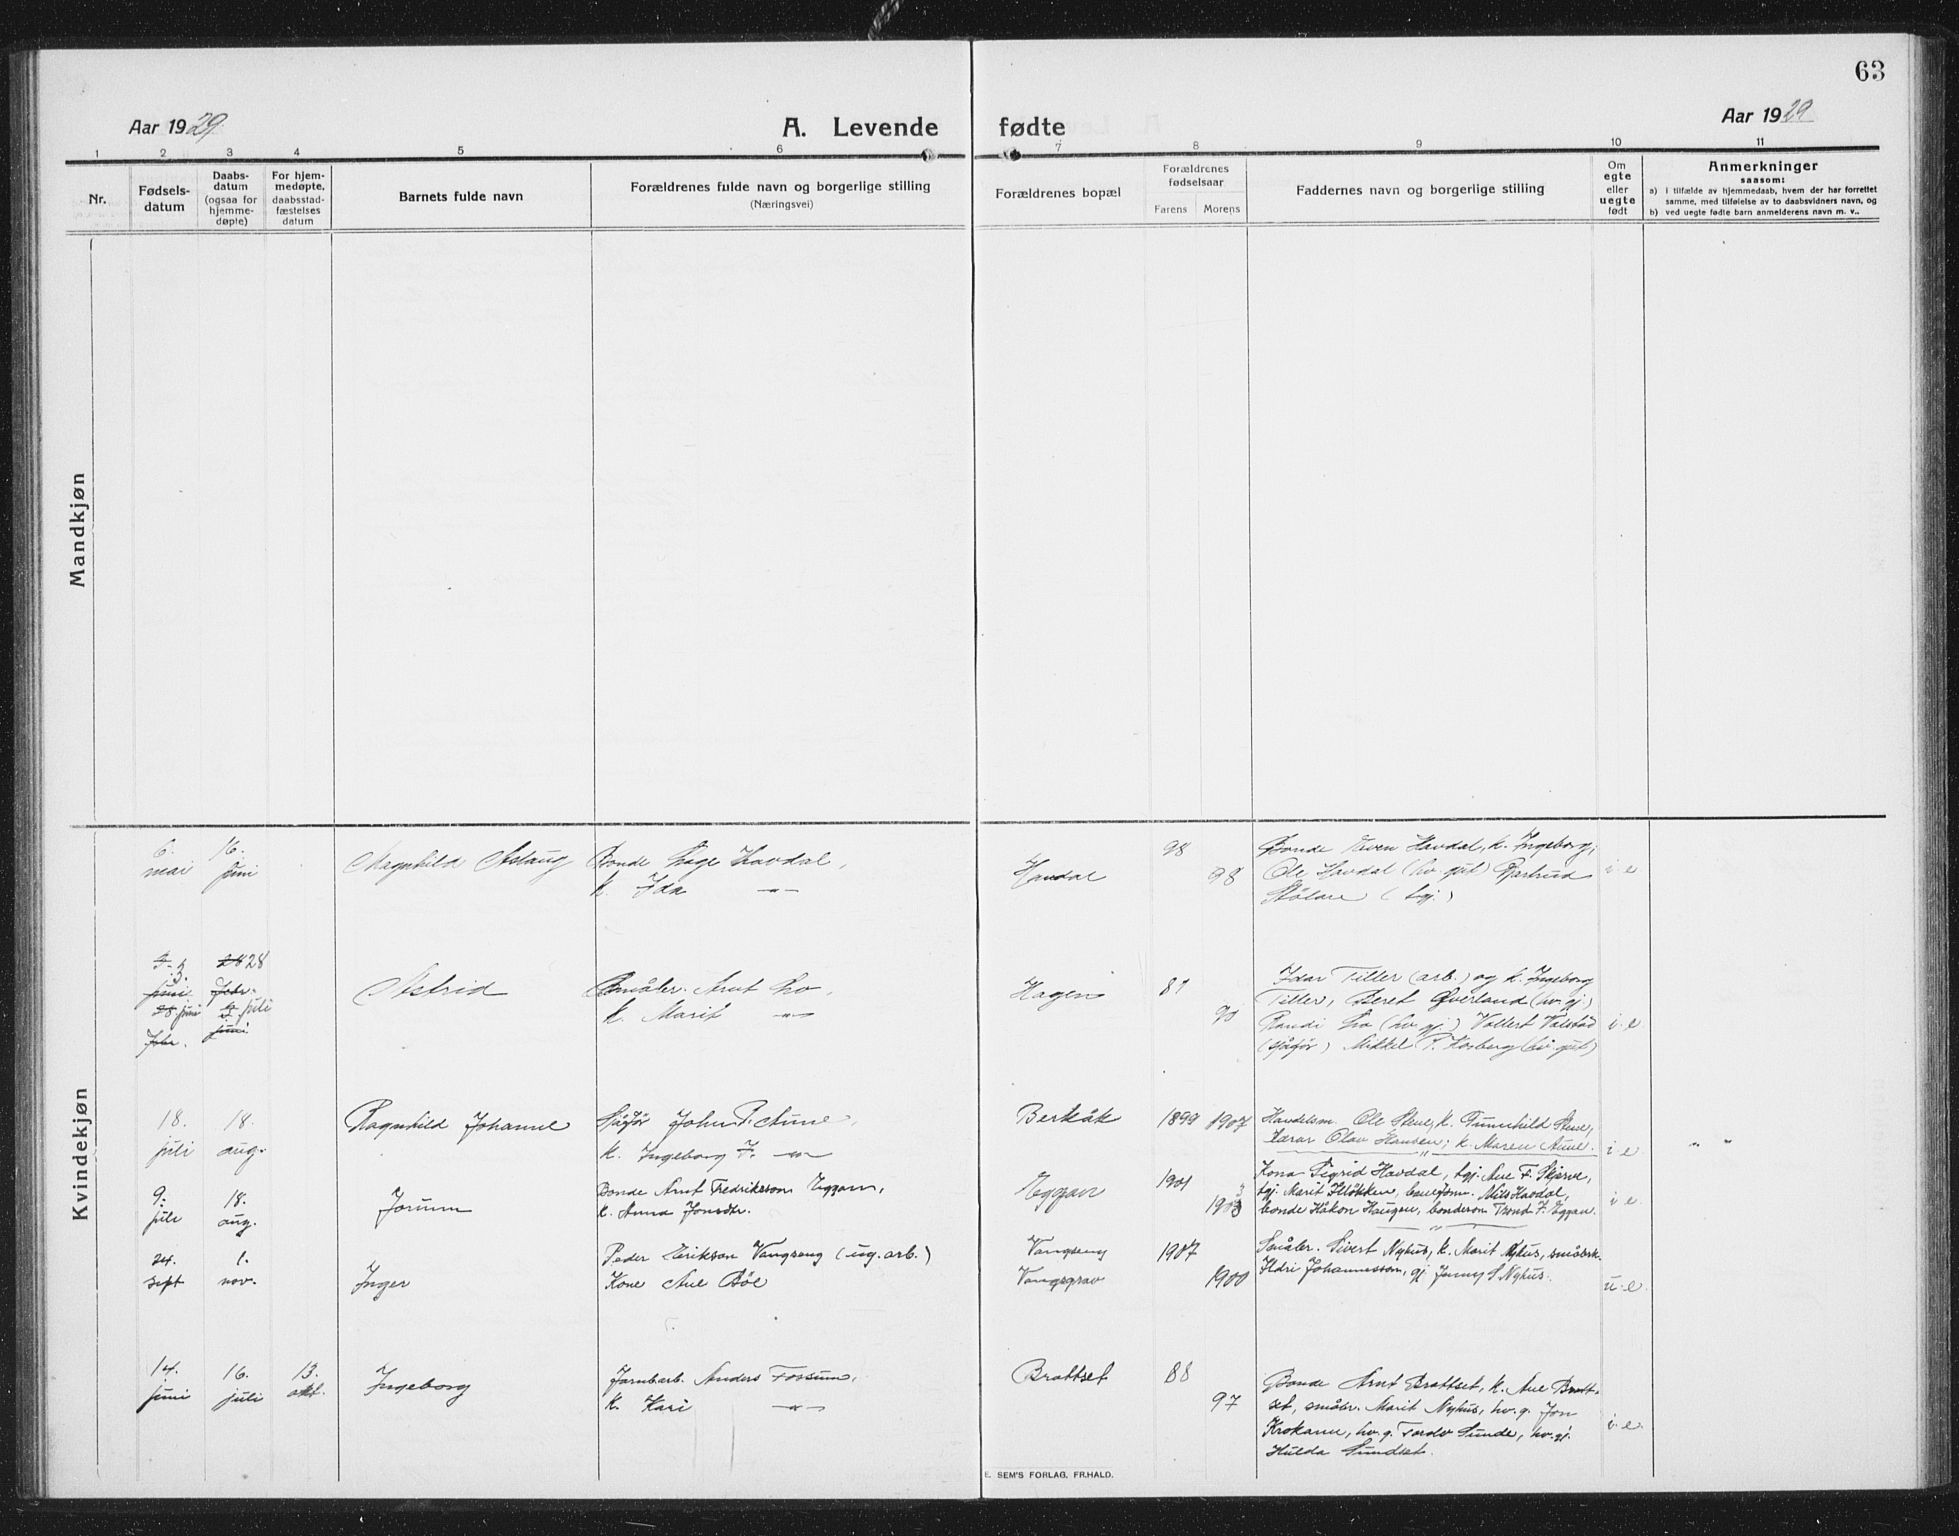 63
Aar 1929
A. Levende fødte
Aar 1929
1 2 3 4 5 6 7 8 9 10 11
Nr.
Fødsels-
datum
Daabs-
datum
(ogsaa for
hjemme-
døpte)
For hjem-
medøpte,
daabsstad-
fæstelses
datum
Barnets fulde navn
Forældrenes fulde navn og borgerlige stilling
(Næringsvei)
Forældrenes bopæl
Forældrenes
fødselsaar
Farens Morens
Faddernes navn og borgerlige stilling
Om
egte
eller
uegte
født
Anmerkninger
saasom:
a) i tilfælde av hjemmedaab, hvem der har forrettet
samme, med tilføielse av to daabsvidners navn, og
b) ved uegte fødte barn anmelderens navn m. v..
Mandkjøn
Kvindekjøn
6. mai
16. juni
Magnhild Aslaug
Bonde Havdal,
k. Ida —"—
Havdal
98
98
Bonde Even Havdal, k. Ingeborg;
Ole Havdal (hv. gut) Gjertrud
Stølan (tgj.)
i e
3.
juni
28 juni
Febr.
28
Febr.
juli
juni
Astrid
Småbr. Arnt Lo,
k. Marit —"—
Hagen
81
90
Idar Tiller (arb.) og k. Ingeborg
Tiller, Beret Øverland (hv. gj.)
Randi Lo (hv. gj.) Vollert Valstad
(sjåfør) Mikkel P. Kosberg (hv. gut)
i. e.
18.
juli
18.
aug.
Ragnhild Johanne
Sjåfør John P. Aune,
k. Ingeborg J. —"—
Berkåk
1899 1907
Handelsm. Ole Stene, k. Gunnhild Stene,
Lærar Olav Hansen; k. Maren Aune.
i e
" "
9.
juli
18.
aug.
Jorunn
Bonde Arnt Fredrikson Eggan,
k. Anna Jonsdtr.
Eggan
1901
1903
Kona Sigrid Havdal, tgj. Ane F. Skjerve,
tgj. Marit Hløkken, Nils Havdal,
bonde Håkon Haugen, bondeson Trond F. Eggan.
i e
24.
sept
1.
nov.
Inger
Peder Erikson Vangseng (ug. arb.)
Kone Ane Bøe
Vangseng
Vangsgrav
1907
1900
Småbr. Sivert Nyhus, k. Marit Nyhus, småbrk.
Ildri Johannesson, gj. Jenny S Nyhus.
u. e.
14.
juni
16.
juli
13.
okt.
Ingeborg
Jarnbarb. Anders Fossum,
k. Kari —"—
Brattset
88
97
Bonde Arnt Brattset, k. Ane Bratt-
set, småbr. Marit Nyhus, hv. g. Jon
Krokann, hv. g. Tordis Sunde, hv. gj.
Hulda Sundset.
i. e.
E. SEM'S FORLAG, FR.HALD.